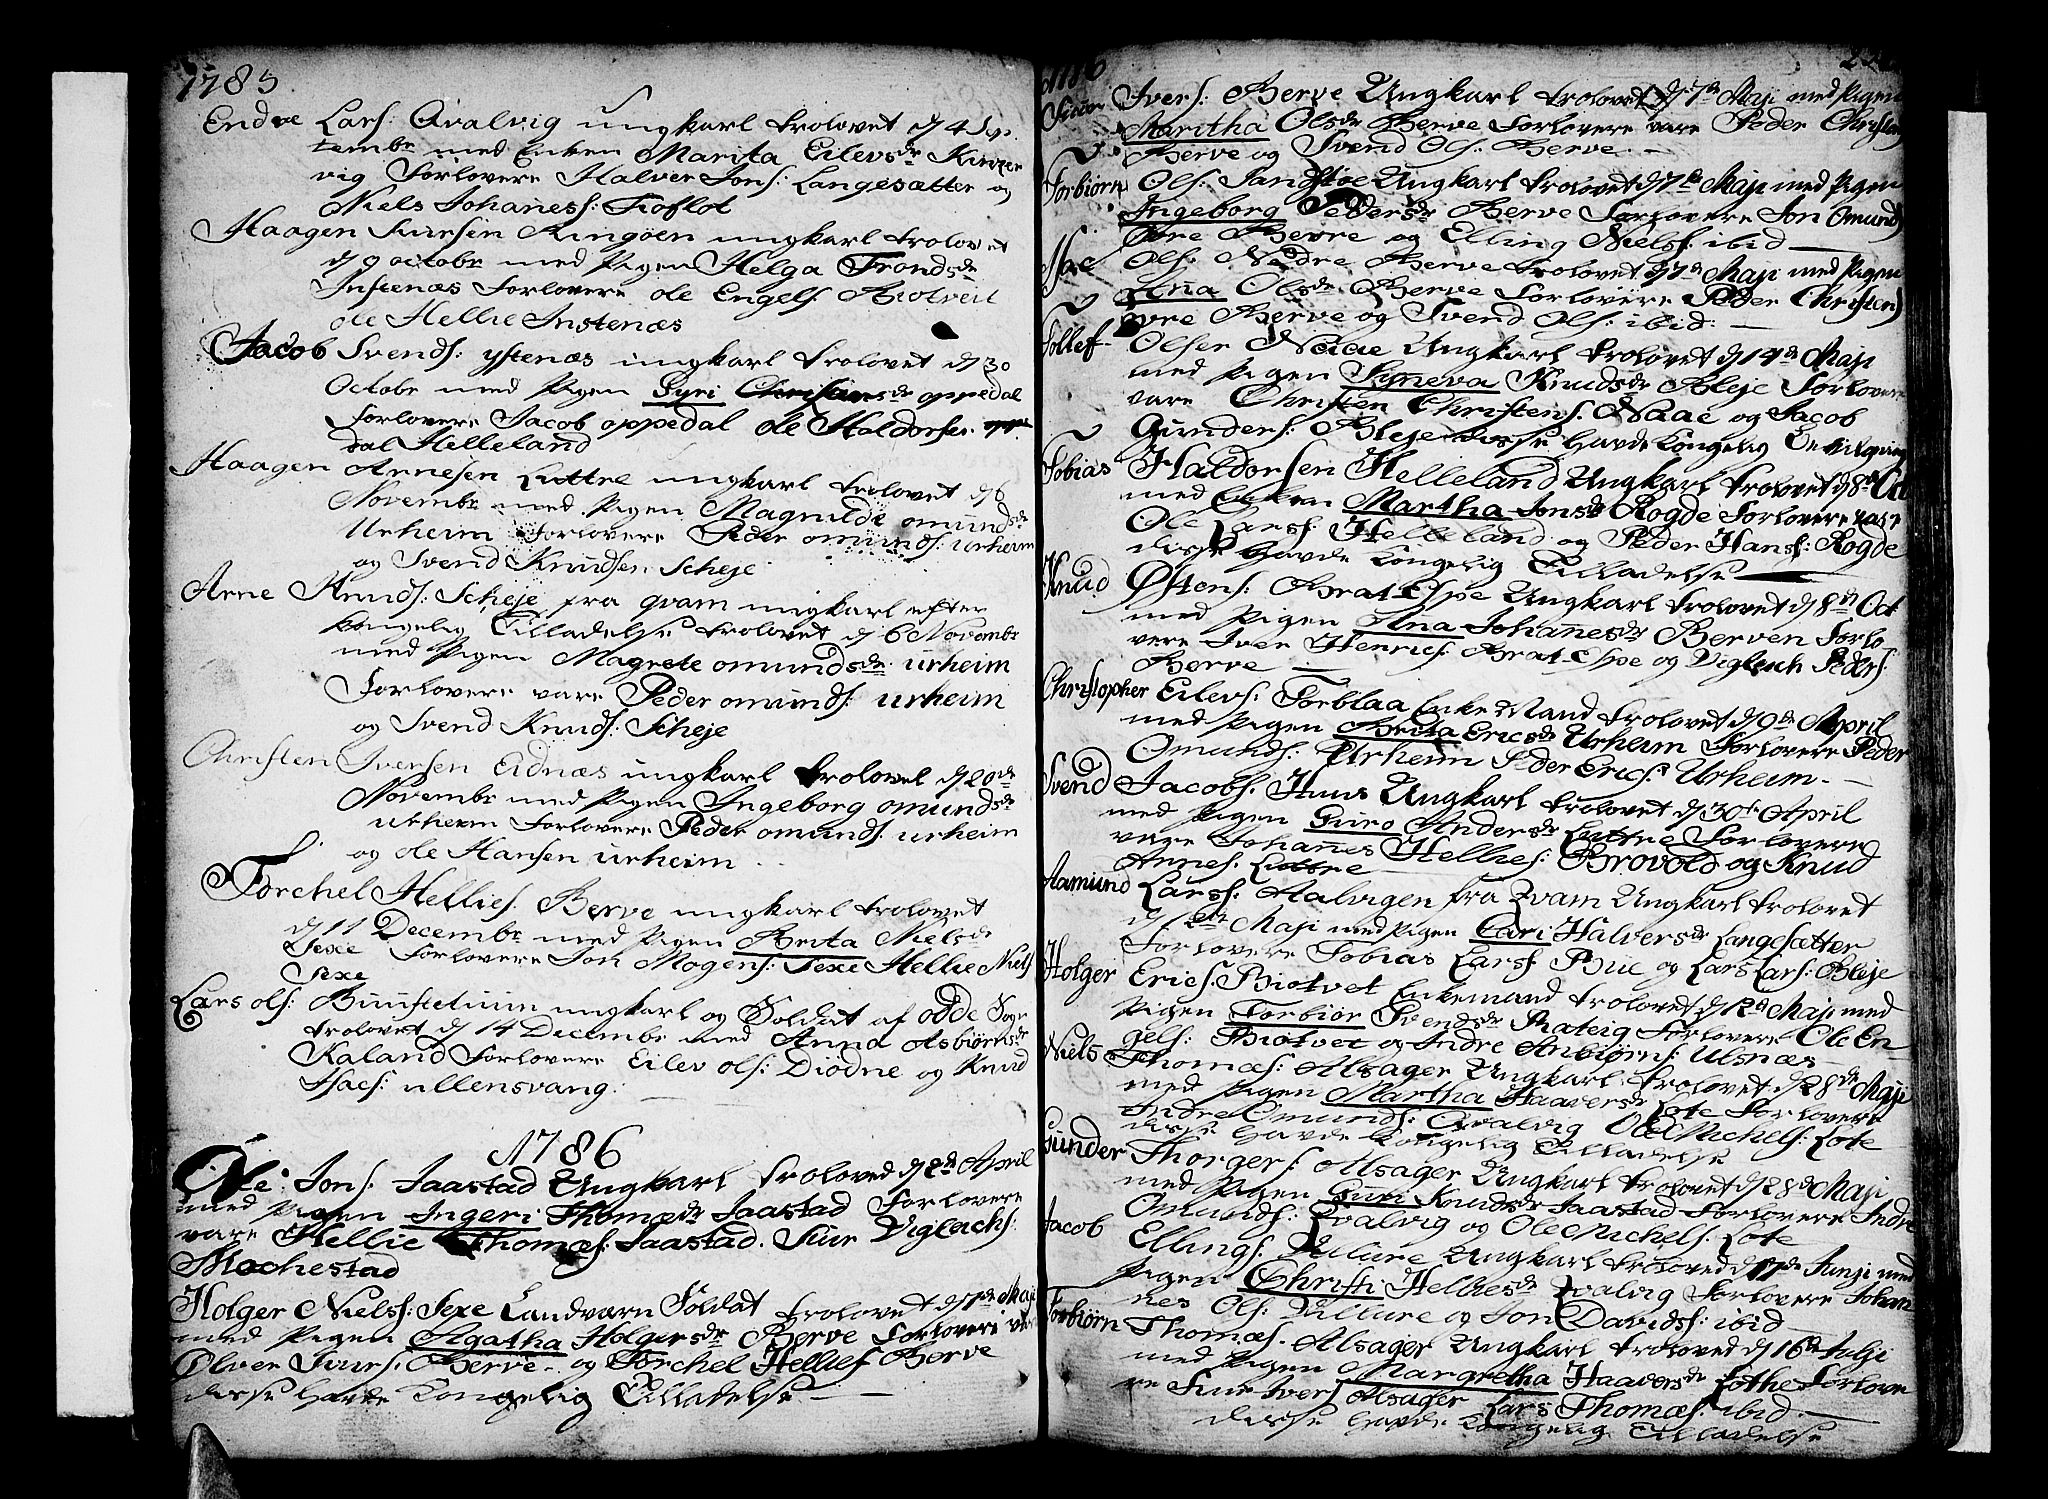 1785
Endre Lars: Qvalvig ungkarl trolovet d 4 Sep-
tembr med Enken Marita Eilevsdr Kinzer
vig Forlovere Halver Jons: Langesætter og
Niels Johaness: Tioflot
Haagen Siursen Ringøen ungkarl trolovet
d 9 octobr med Pigen Helga Trondsdr
Instenæs Forlovere ole Engels
ole Hellie Instenæs
Jacob Svends: ystenæs ungkarl trolovet d 30
Octobr med Pigen Syri Christensdr oppedal
Forlovere Jacob oppedal ole Haldorsen
Helleland
Haagen Arnesen Luttre ungkarl trolovet d 6
Novembr med Pigen Magnilde omundsdr
Urheim Forlovere Peder omunds: urheim
og Svend Knudsen Scheje
Arne Knuds: Scheje fra qvam ungkarl efter
kongelig Tilladelse trolovet d 6 Novembr
med Pigen Magrete omundsdr urheim
Forlovere vare Peder omunds: urheim
og Svend Knuds: Scheje
Christen Iversen Eidnæs ungkarl trolovet d 20de
Novembr med Pigen Ingeborg omundsdr
urheim Forlovere Peder omunds: urheim
og ole Hansen urheim
Torchel Hellies: Berve ungkarl trolovet
d 11 Decembr med Pigen Brita Nielsdr
Sexe Forlovere Jon Mogens: Sexe Hellie Niels
Sexe
Lars ols: Buustetuun ungkarl og Soldat af odde Sogn
trolovet d 14 Decembr med Anna Asbiørnsdr
Kaland Forlovere Eilev ols: Diödne og Knud
Isacs: ullensvang:
1786
Ole Jons: Jaastad Ungkarl Troloved d 2d April
med Pigen Ingeri Thomædr Jaastad Forlovere
vare Hellie Thomæs: Jaastad. Siur Viglachs:
Mochestad
Holger Niels: Sexe Landværn Soldat trolovet d 7de Maji
med Pigen Agatha Holgersdr Berve Forlovere
Olver Siurs: Berve og Torchel Hellies Berve
disse havde Kongelig Tilladelse
Siur Ivers: Berve Ungkarl trolovet d 7de Maji med Pigen
Maritha Olsdr Berve Forlovere vare Peder Christens
Berve og Svend Ols: Berve.
Torbiörn Ols: Ungkarl trolovet d 7de Maji med Pigen
Ingeborg Pedersdr Berve Forlovere Jon Omunds
Berve og Elling Niels: ibid
Isac Ols: Nedre Berve trolovet d 7de Maji med Pigen
Ana Olsdr Berve Forlovere Peder Christens
Berve og Svend Ols: ibid:
Tollef Olsen Naae Ungkarl trolovet d 14de Maji
med Pigen Syneva Knudsdr Bleje Forlovere
vare Christen Christens: Naae og Jacob
Gunders: Bleje disse havde kongelig Bevilgning
Tobias Haldorsen Helleland Ungkarl trolovet d 8de Oct
med Enken Martha Jonsdr Rogde Forlovere vare
Ole Larss: Helleland og Peder Hans: Rogde
disse havde Kongelig Tilladelse
Knud Østens: Brat-Espe Ungkarl trolovet d 8de Oct
med Pigen Ana Johannesdr Berven Forlo-
vere Iver Henrics: Brat-Espe og Viglach Peders:
Berve
Christopher Eilevs: Torblaa Enke Mand trolovet d 9de April
med Pigen Brita Ericsdr Urheim Forlovere Peder
Omunds: Urheim Peder Erics: Urheim.
Svend Jacobs: Huus Ungkarl trolovet d 30te April
med Pigen Guro Andersdr Luttre Forlovere
vare Johannes Hellies: Brovold og Knud
Arnes: Luttre
Aamund Larss: Aalvigen fra Qvam Ungkarl trolovet
Maji med Pigen Cari Halversdr Langesætter
Forlovere Tobias Larss: Bue og Lars Lars: Bleje
Holger Erics: Biotvet Enkemand trolovet d 12d Maji med
Pigen Torbiör Svendsdr Forlovere Ole En-
gels: Biotvet og Andre Anbiørns: Ulsnæs
Niels Thomæs: Alsager Ungkarl trolovet d 28de Maji
med Pigen Martha Haaversdr Lote Forlovere
Andre Omunds: Qvalvig Ole Michels: Lote
disse havde Kongelig Tilladelse
Gunder Thorgers: Alsager Ungkarl trolovet d 28de Maji
med Pigen Guri Knudsdr Jaastad Forlovere Andre
Omunds: Qvalvig og Ole Michels: Lote
Jacob Ellings: Villure Ungkarl troloved d 17de Junji med
Pigen Christi Helliesdr Qvalvig Forlovere Johan-
nes Ols: Villure og Jon Davids: ibid
Torbiörn Thomæs: Alsager Ungkarl troloved d 16de Julji
med Pigen Margretha Haaversdr Lothe Forlove
re Siur Ivers Alsager Lars Thomæs: ibid.
disse havde Kongelig Tilladelse